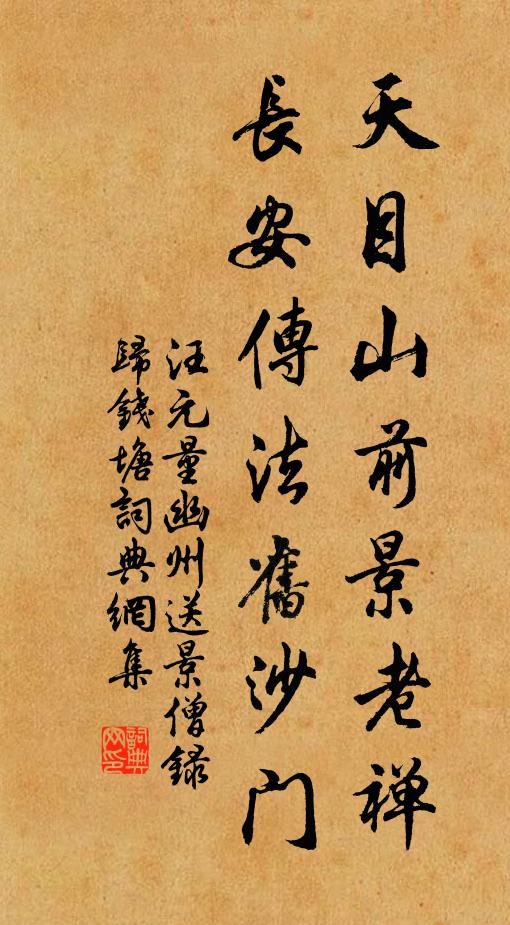 天目山前景老禅
長安傳法舊沙门
汪元量幽州送景僧録
歸錢塘詞典網集
詞典网印